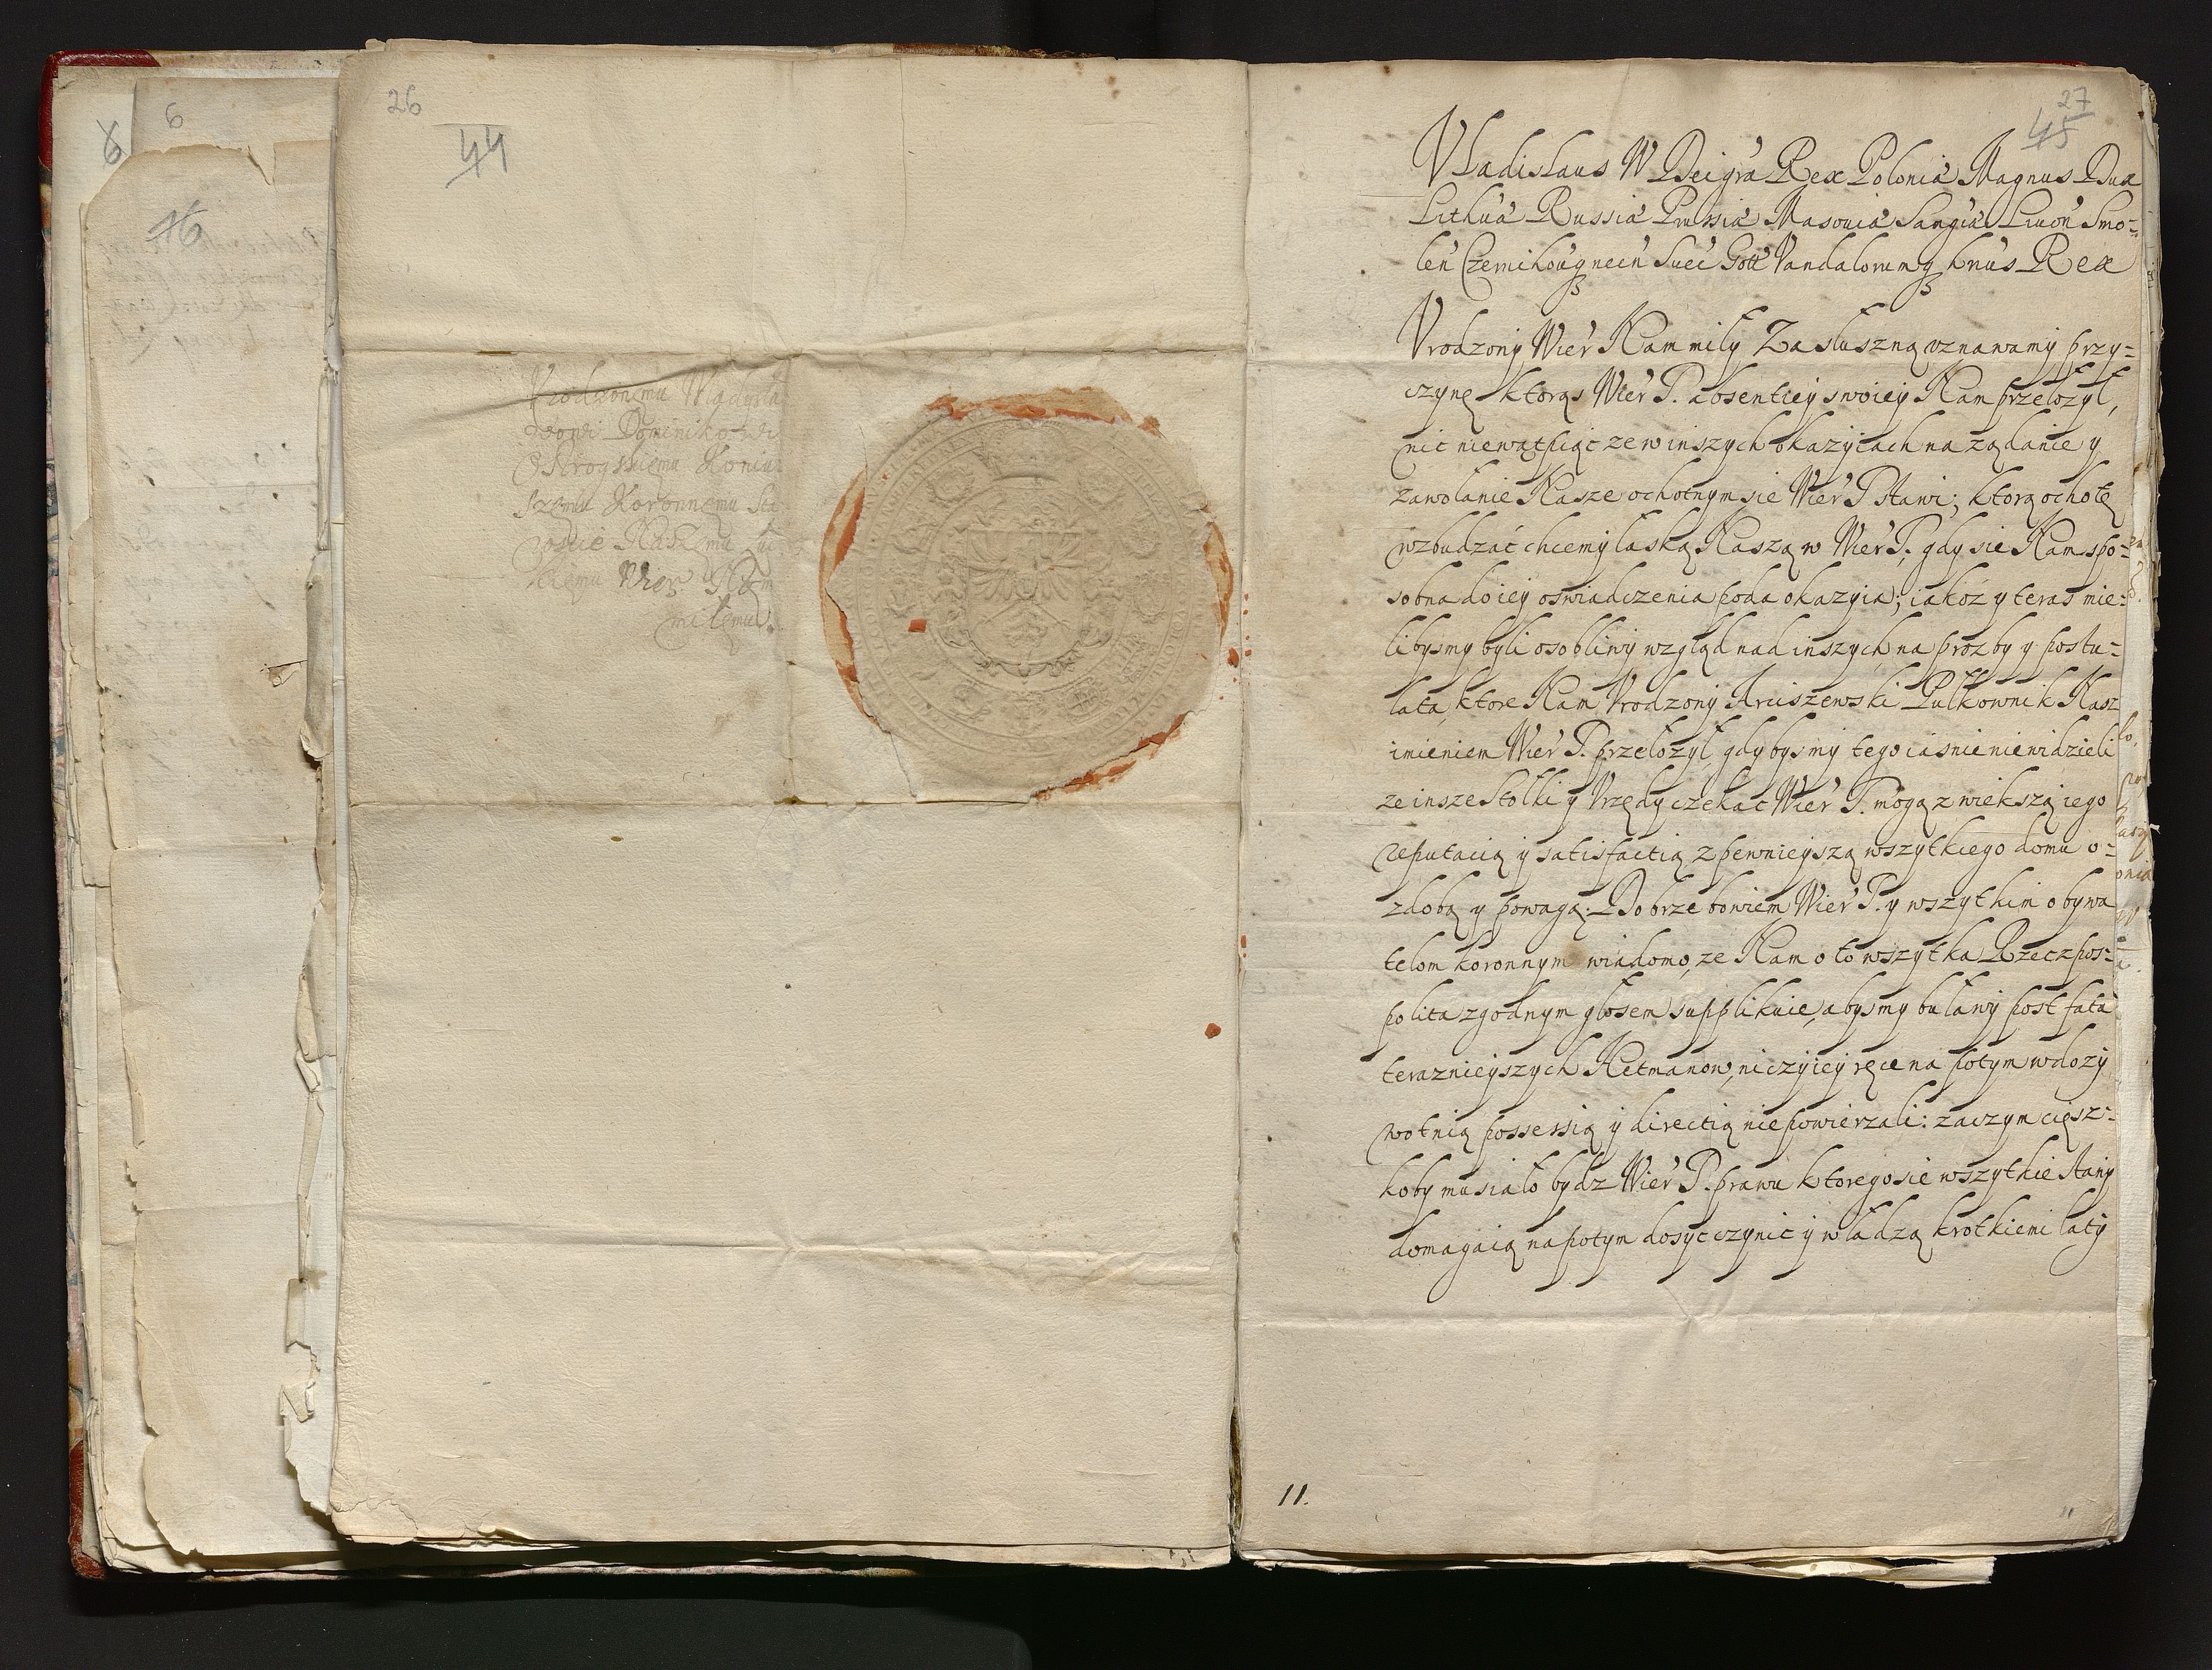 26
44
6
6
16
Vrodzonemu Władysła
wowi Dominikowi
Ostrogskiemu Koniu
szemu Koronnemu Sta
roscie Naszemu
Wier Nam
miłemu.
27
45
Vladislaus IV Dei gra Rex Poloniæ Magnus Dux
Lithuæ Russiæ Prussiæ Masouiæ Samgiæ Liuon Smo=
len Czernihouqȝ necn Suec Gott Vandalorumqȝ hrius Rex
Vrodzony Wier Nam miły Za słuszną vznawamy przy=
czynę ktorąs Wier T. absentiey swoiey Nam przełozył,
nic niewątpiąc ze w inszych okazyiach na ządanie y
zawołanie Nasze ochotnym sie Wier T stawi; ktorą ochotę
wzbudzać chcemy łaską Naszą w Wier T. gdy sie Nam spo=
sobna do iey oswiadczenia poda okazyia; iakoz y teras mie=
libysmy byli osobliwy wzgląd nad inszych na prozby y postu=
lata, ktore Nam Vrodzony Arciszewski Pułkownik Nasz
imieniem Wier T. przełozył, gdybysmy tego iasnie niewidzieli
ze insze Stołki y Vrzędy czekać Wier T. mogą z wiekszą iego
reputacią y satisfactią z pewnieyszą wszytkiego domu o=
zdobą y powagą. Dobrze bowiem Wier T. y wszytkim obywa
telom koronnym wiadomo, ze Nam o to wszytka Rzeczpos=
polita zgodnym głosem supplikuie, abysmy buławy post fata
teraznieyszych Hetmanow, niczyiey ręce na potym w dozy
wotnią possessią y directią niepowierzali: zaczym cięsz=
koby musiało bydz Wier T. prawu ktorego sie wszytkie stany
domagaią napotym dosyc czynic y władzą krotkiemi laty
11.